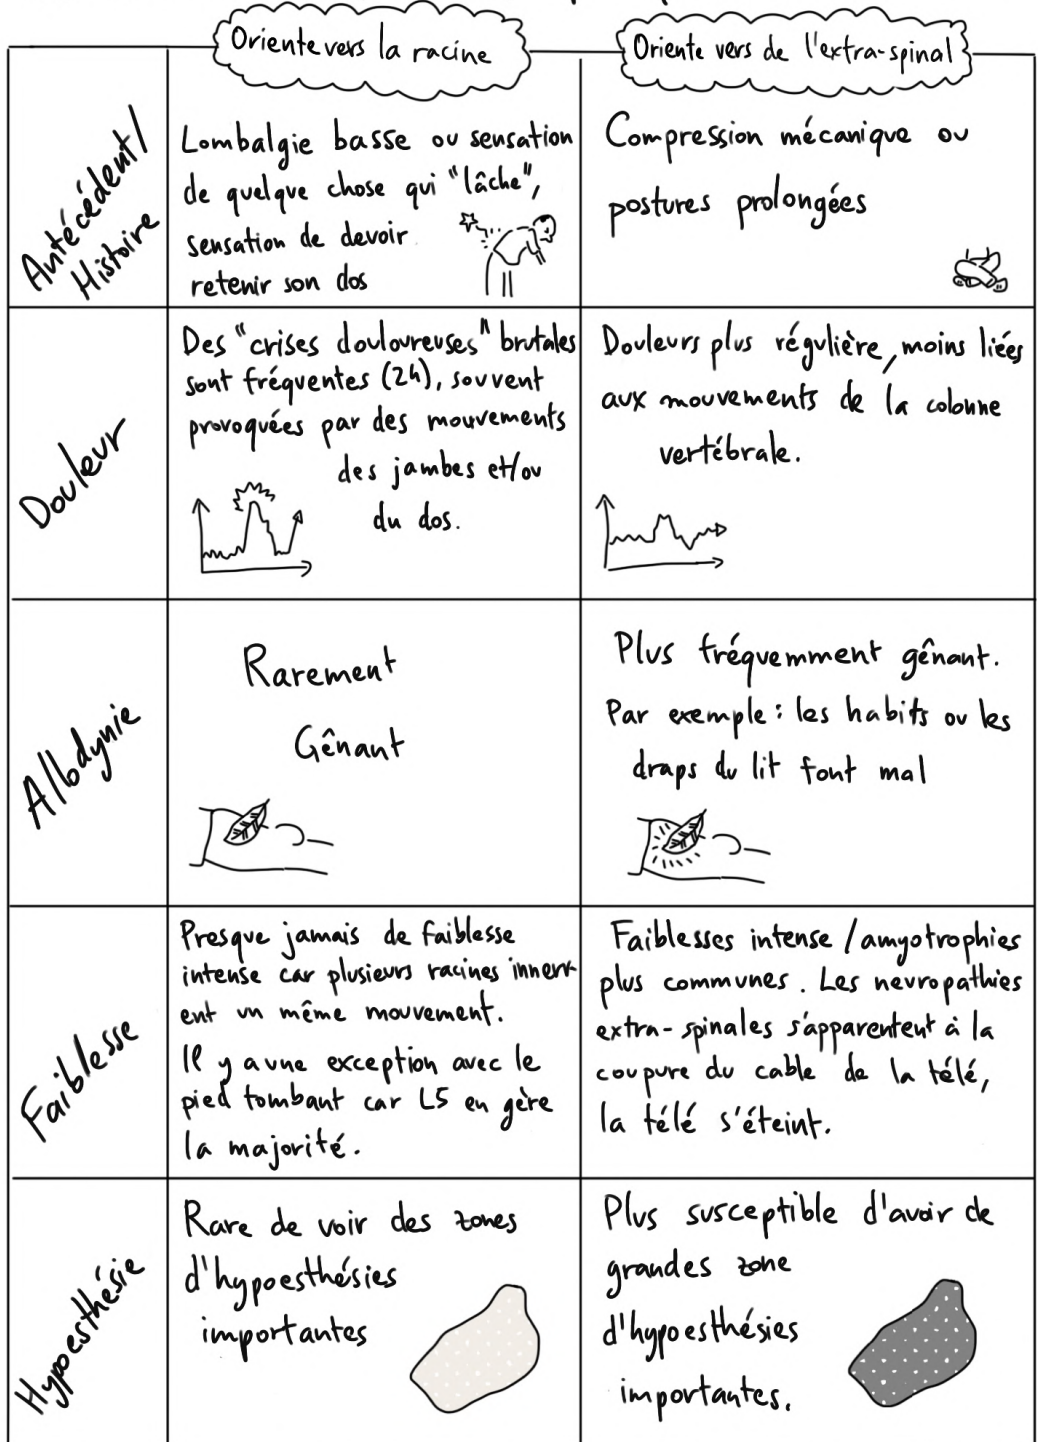 Oriente vers la racine
Oriente vers de l'extra-spinal
Antécédent/
Histoire
Lombalgie basse ou sensation
de quelque chose qui "lâche",
sensation de devoir
retenir son dos
Compression mécanique ou
postures prolongées
Douleur
Des "crises douloureuses" brutales
sont fréquentes (24), souvent
provoquées par des mouvements
des jambes et/ou
du dos.
Douleurs plus régulière, moins liées
aux mouvements de la colonne
vertébrale.
Allodynie
Rarement
Gênant
Plus fréquemment gênant.
Par exemple : les habits ou les
draps du lit font mal
Faiblesse
Presque jamais de faiblesse
intense car plusieurs racines innerv-
ent un même mouvement.
Il y a une exception avec le
pied tombant car L5 en gère
la majorité.
Faiblesses intense / amyotrophies
plus communes. Les neuropathies
extra-spinales s'apparentent à la
coupure du cable de la télé,
la télé s'éteint.
Hypoesthésie
Rare de voir des zones
d'hypoesthésies
importantes
Plus susceptible d'avoir de
grandes zone
d'hypoesthésies
importantes.